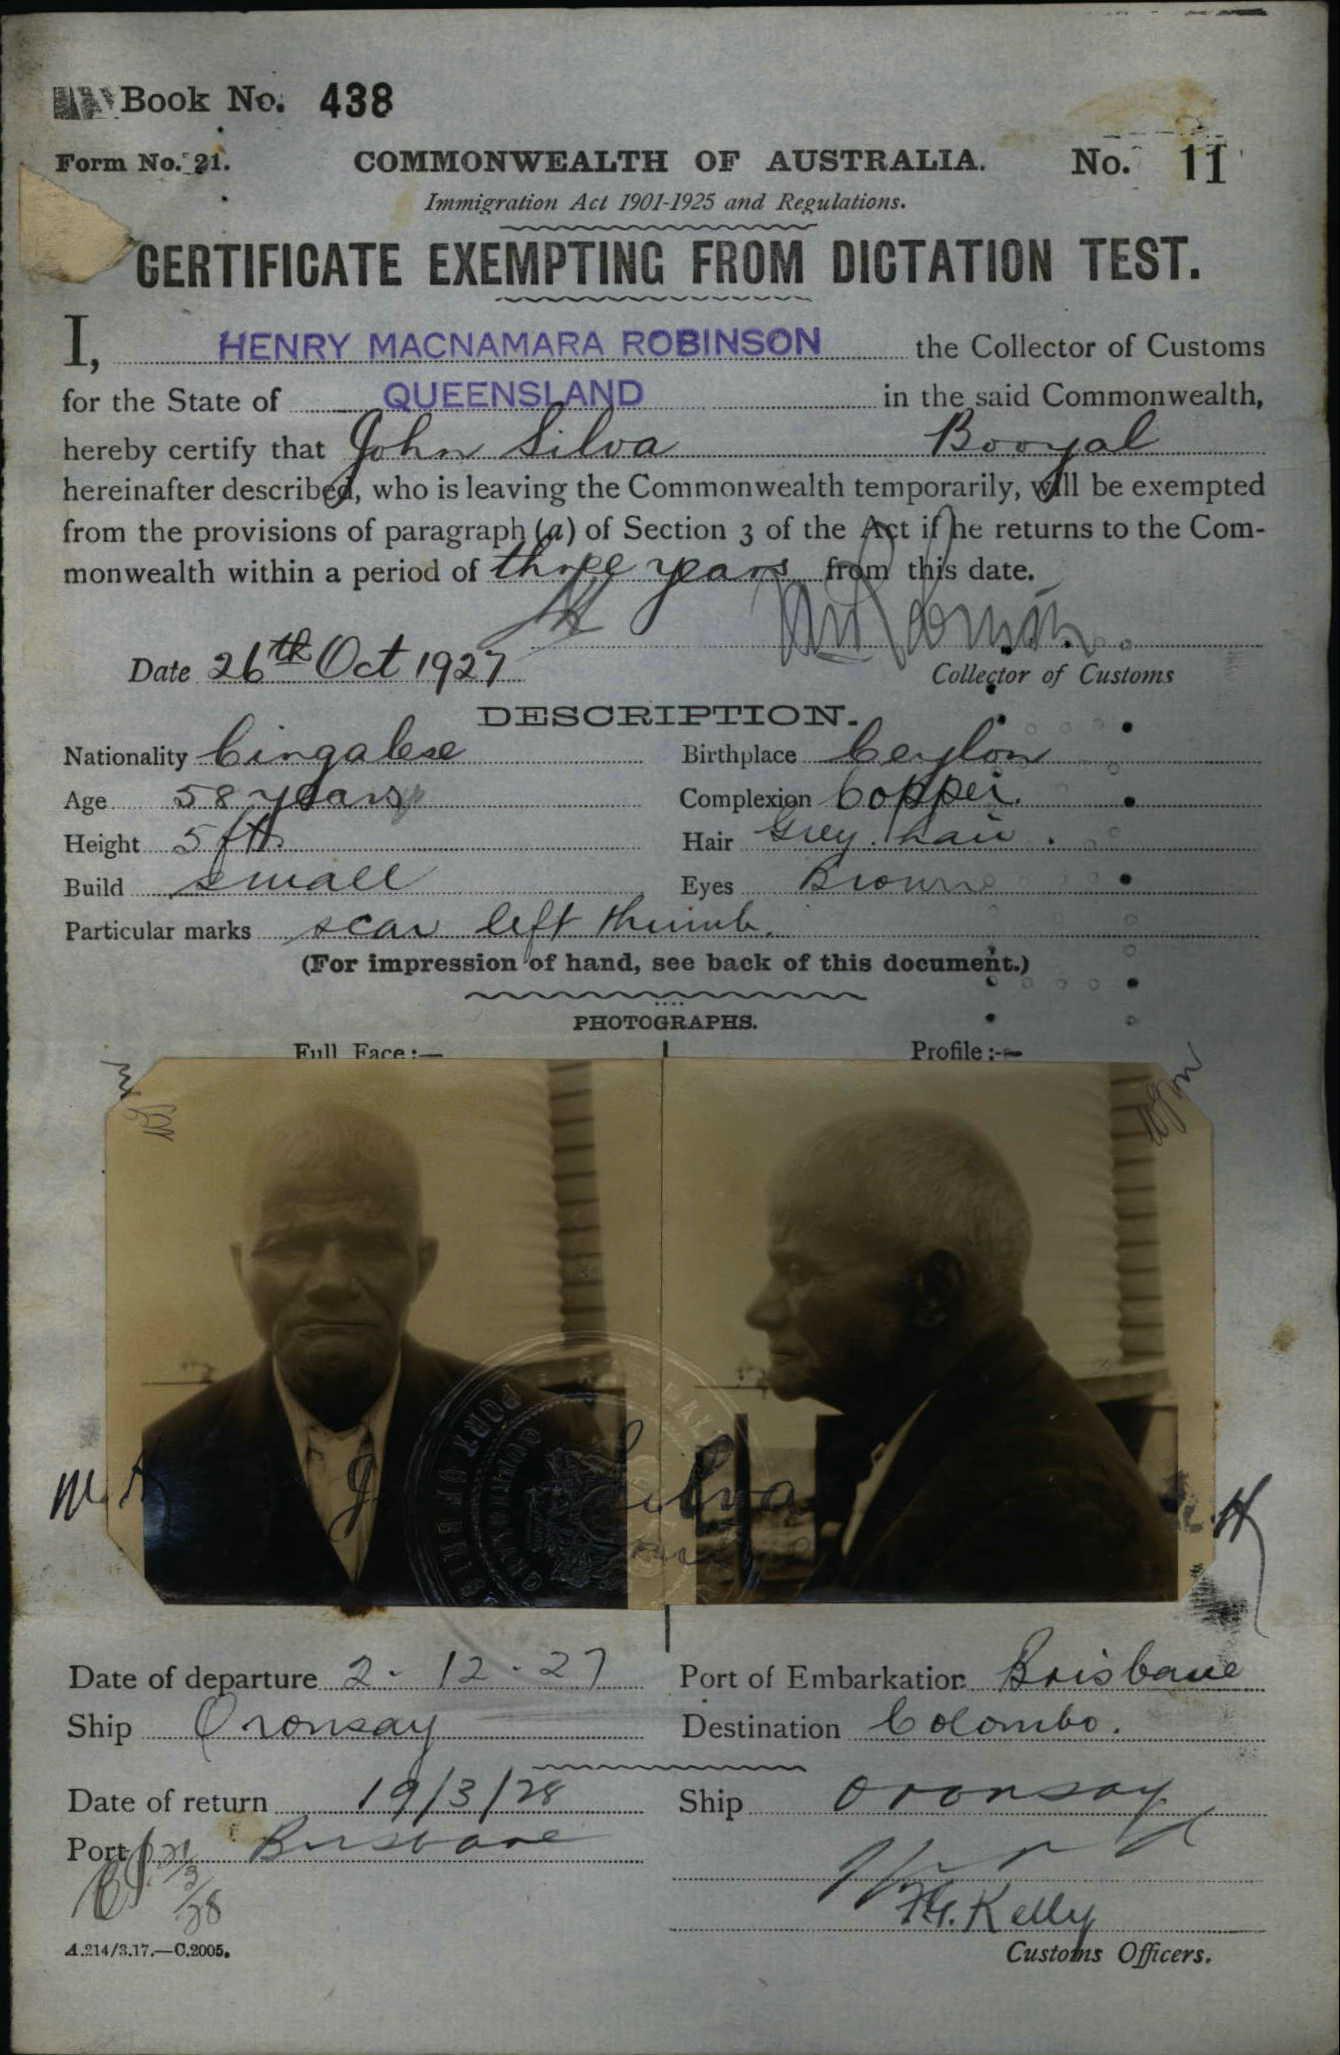 Book No. 438
Form No. 21. COMMONWEALTH OF AUSTRALIA. No. 11
Immigration Act 1901-1925 and Regulations.
CERTIFICATE EXEMPTING FROM DICTATION TEST.
I, HENRY MACNAMARA ROBINSON the Collector of Customs
for the State of QUEENSLAND in the said Commonwealth,
hereby certify that John Silva Booyal
hereinafter described, who is leaving the Commonwealth temporarily, will be exempted
from the provisions of paragraph (a) of Section 3 of the Act if he returns to the Com-
monwealth within a period of three years from this date.
Date 26th Oct 1927
Collector of Customs
DESCRIPTION.
Nationality Cingalese Birthplace Ceylon
Age 58 years Complexion Copper.
Height 5 ft Hair Grey hair.
Build small Eyes Brown
Particular marks scar left thumb.
(For impression of hand, see back of this document.)
PHOTOGRAPHS.
Full Face:— Profile:—
J Silva
PORT OF
Date of departure 2-12-27 Port of Embarkation Brisbane
Ship Oronsay Destination Colombo.
Date of return 19/3/28 Ship Oronsay
Port Brisbane
21/3/28
Kelly
A.214/3.17.—C.2005. Customs Officers.